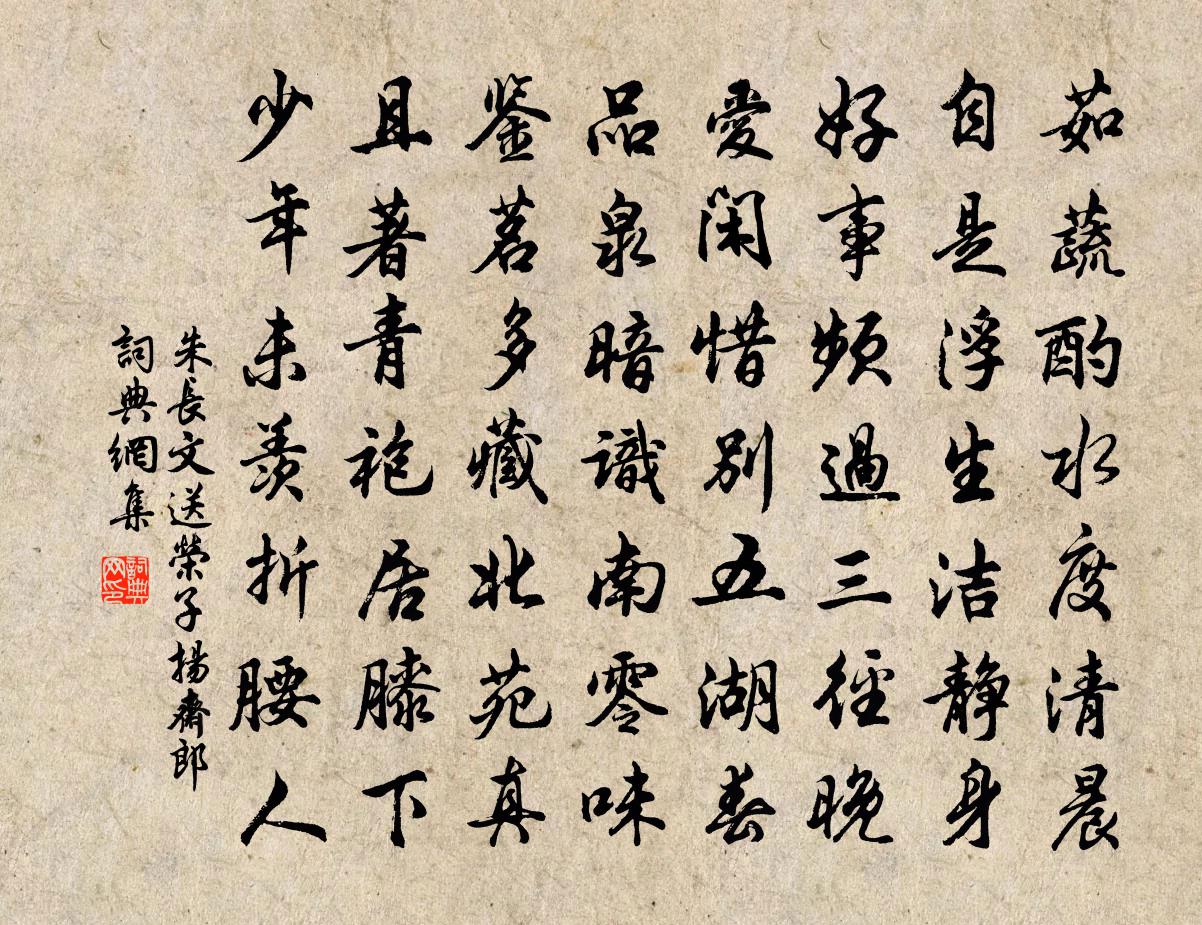 茹蔬酌水度清晨
自是浮生洁靜身
好事頻過三徑晚
愛閑惜別五湖春
品泉暗識南零味
鉴茗多藏北苑真
且著青袍居膝下
少年未羨折腰人
朱長文送榮子揚齋郎
詞典網集
詞典网印